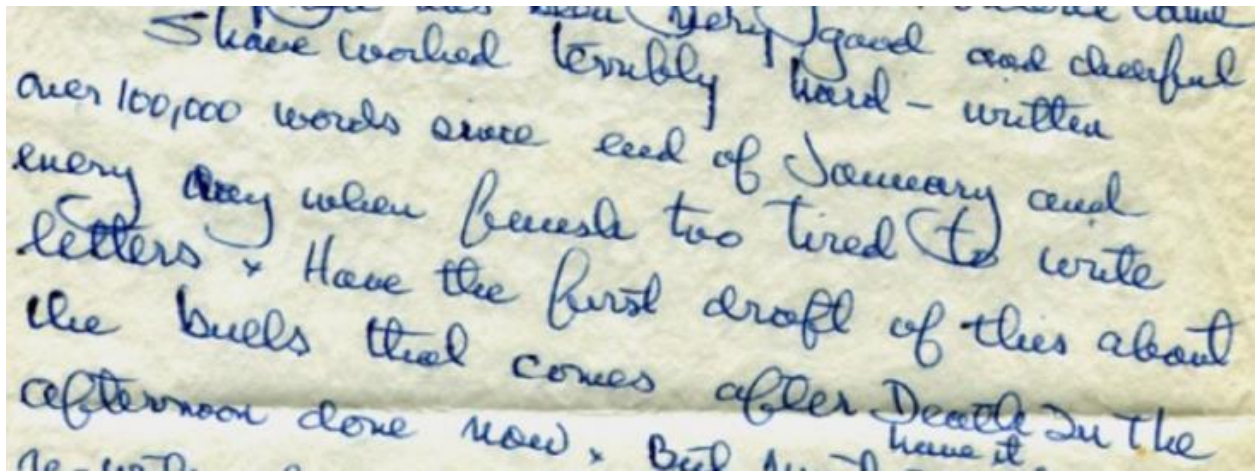 has been very good and cheerful
I have worked terribly hard - written
over 100,000 words since end of January and
every day when finish too tired to write
letters x Have the first draft of this about
the bulls that comes after Death In The
afternoon done now x But
have it